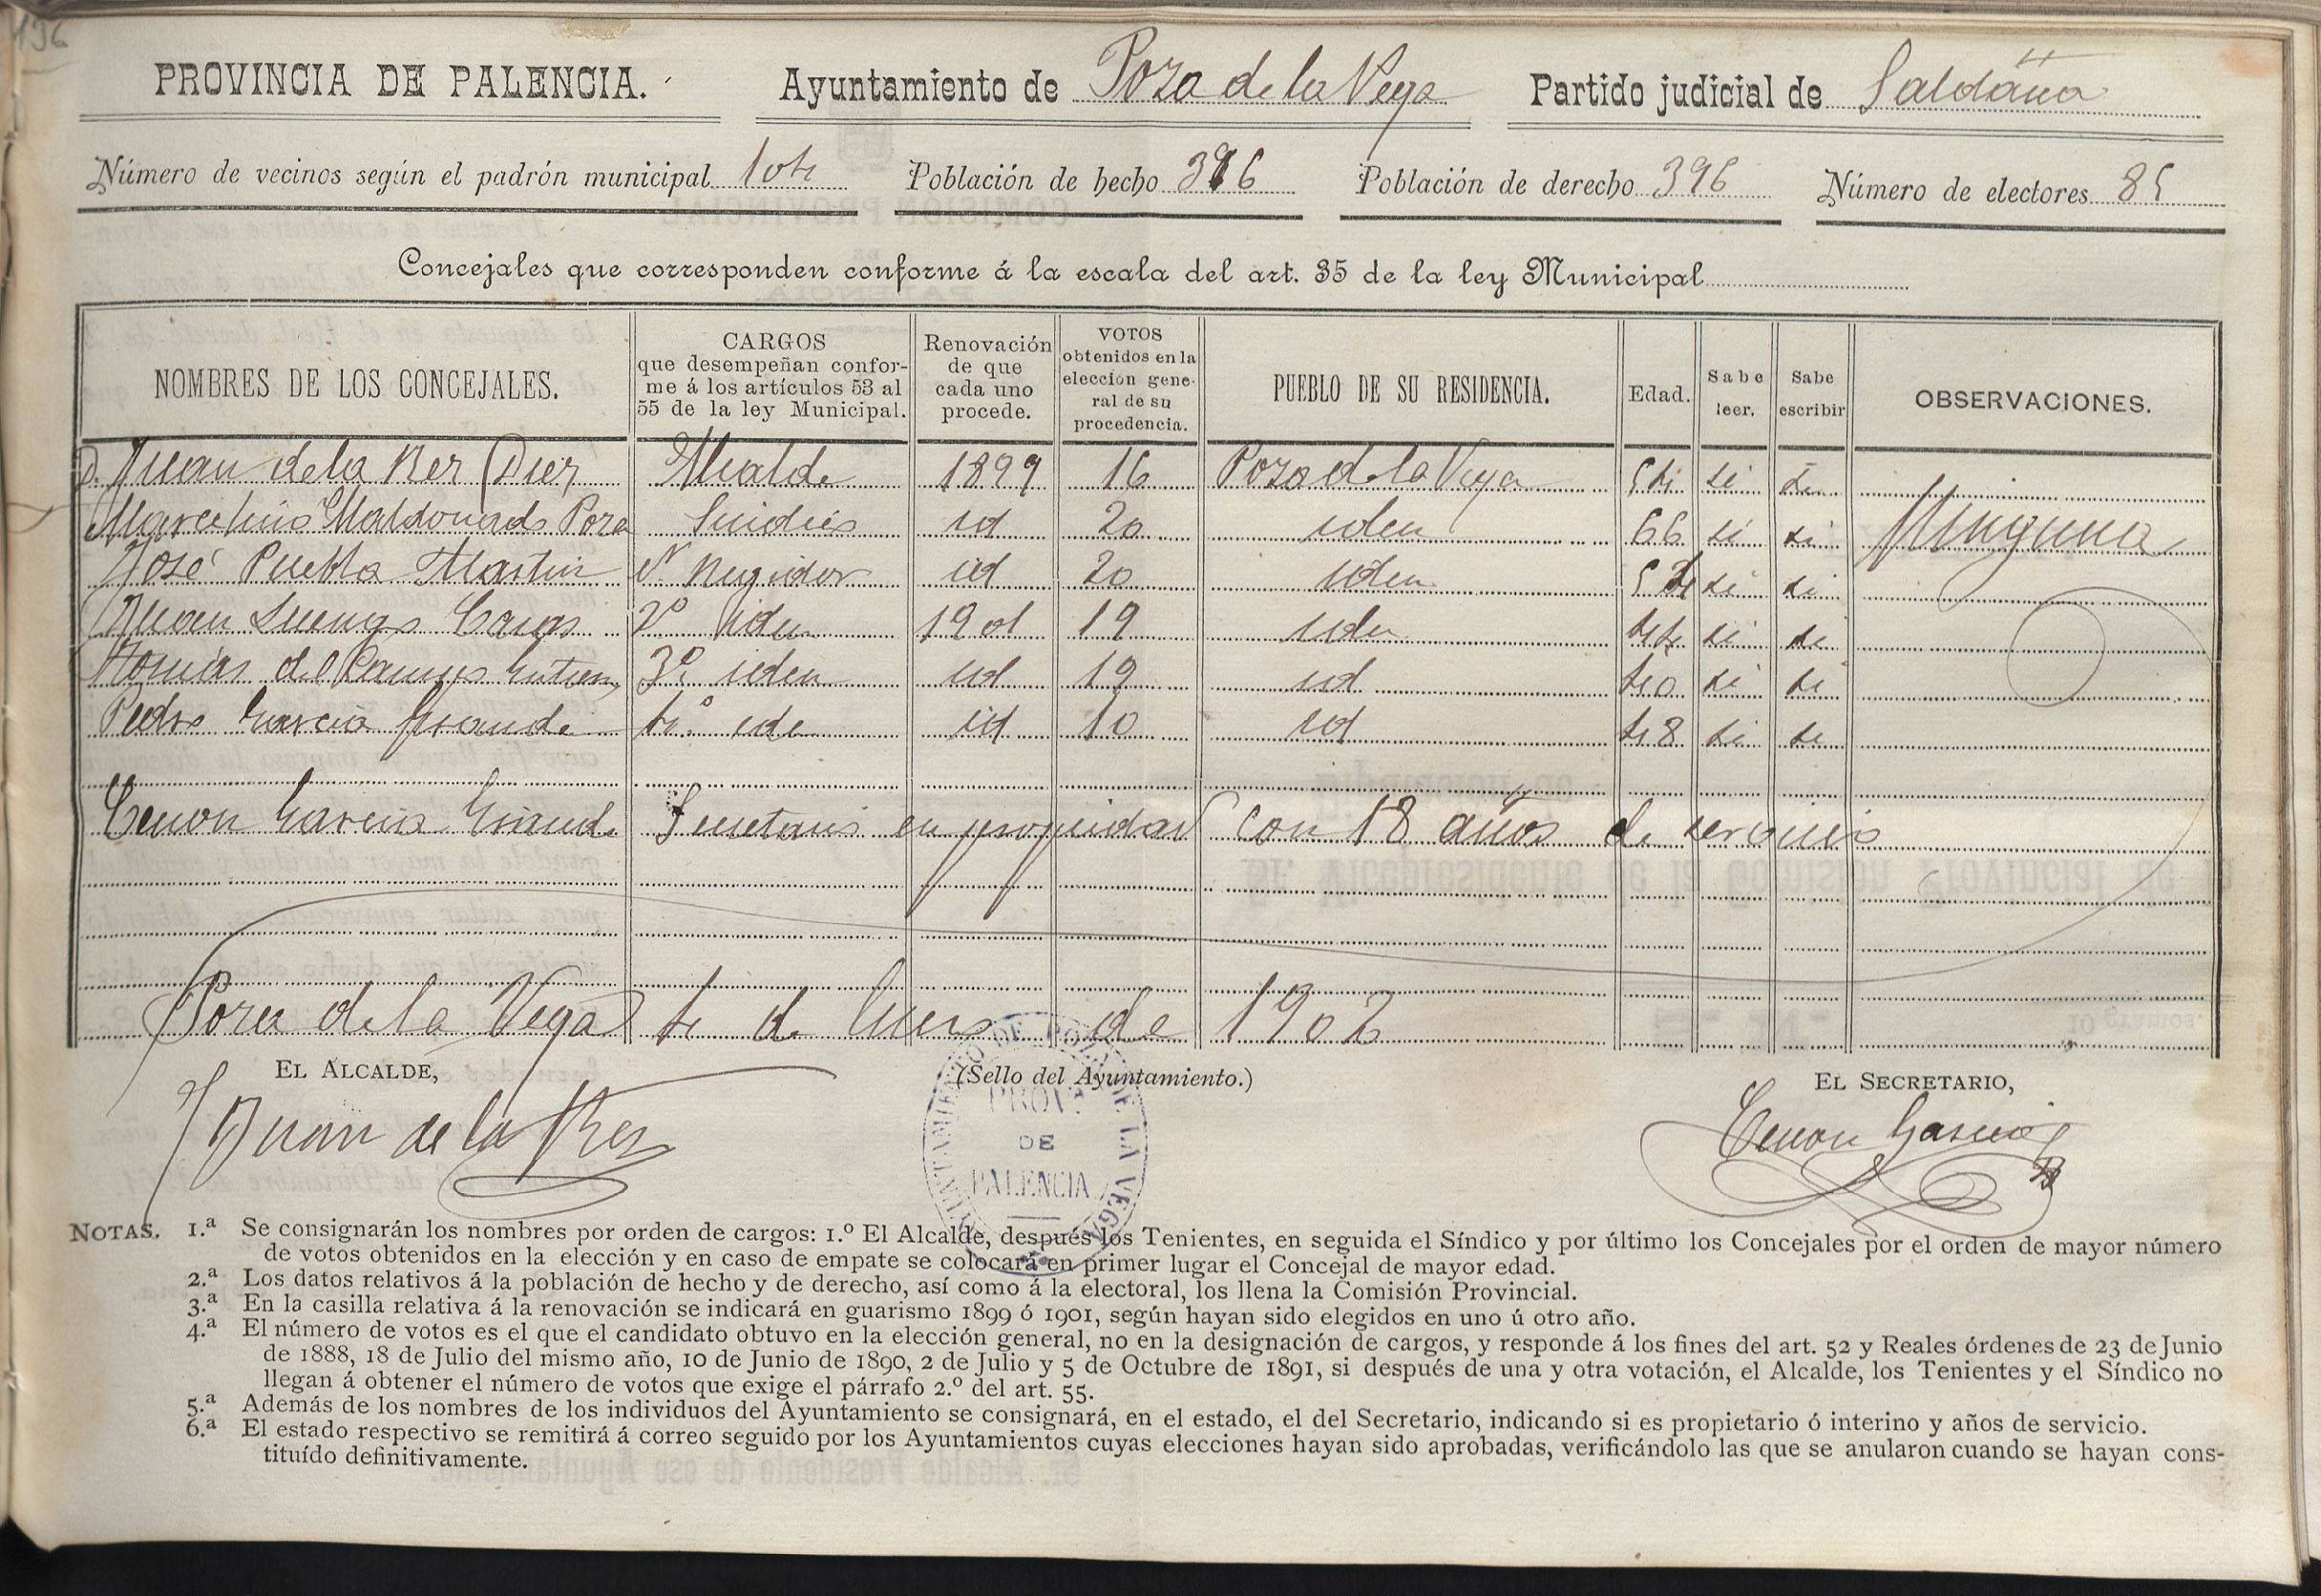 196
PROVINCIA DE PALENCIA. Ayuntamiento de Poza de la Vega Partido judicial de Saldaña
Número de vecinos según el padrón municipal 104 Población de hecho 396 Población de derecho 396 Número de electores 85
Concejales que corresponden conforme á la escala del art. 35 de la ley Municipal
NOMBRES DE LOS CONCEJALES. CARGOS que desempeñan conforme á los artículos 53 al 55 de la ley Municipal. Renovación de que cada uno procede. VOTOS obtenidos en la elección general de su procedencia. PUEBLO DE SU RESIDENCIA. Edad. Sabe leer. Sabe escribir OBSERVACIONES.
D. Juan de la Rez Diez Alcalde 1899 16 Poza de la Vega 54 si si
Marcelino Maldonado Poza Sindico id 20 iden 66 si si Ninguna
José Puebla Martin 1º Regidor id 20 iden 54 si si
Juan Luengo Casas 2º iden 1901 19 iden 44 si si
Tomás del Campo 3º iden id 19 id 40 si si
Pedro Garcia Grande 4º iden id 10 id 48 si si
Cenon Garcia Grande Secretario en propiedad con 18 años de servicio
Poza de la Vega 4 de Enero de 1902
EL ALCALDE, (Sello del Ayuntamiento.) EL SECRETARIO,
Juan de la Rez Cenon Garcia
AYUNTAMIENTO DE POZA DE LA VEGA
PROVA
DE
PALENCIA
NOTAS. 1.ª Se consignarán los nombres por orden de cargos: 1.º El Alcalde, después los Tenientes, en seguida el Síndico y por último los Concejales por el orden de mayor número
de votos obtenidos en la elección y en caso de empate se colocará en primer lugar el Concejal de mayor edad.
2.ª Los datos relativos á la población de hecho y de derecho, así como á la electoral, los llena la Comisión Provincial.
3.ª En la casilla relativa á la renovación se indicará en guarismo 1899 ó 1901, según hayan sido elegidos en uno ú otro año.
4.ª El número de votos es el que el candidato obtuvo en la elección general, no en la designación de cargos, y responde á los fines del art. 52 y Reales órdenes de 23 de Junio
de 1888, 18 de Julio del mismo año, 10 de Junio de 1890, 2 de Julio y 5 de Octubre de 1891, si después de una y otra votación, el Alcalde, los Tenientes y el Síndico no
llegan á obtener el número de votos que exige el párrafo 2.º del art. 55.
5.ª Además de los nombres de los individuos del Ayuntamiento se consignará, en el estado, el del Secretario, indicando si es propietario ó interino y años de servicio.
6.ª El estado respectivo se remitirá á correo seguido por los Ayuntamientos cuyas elecciones hayan sido aprobadas, verificándolo las que se anularon cuando se hayan cons-
tituído definitivamente.